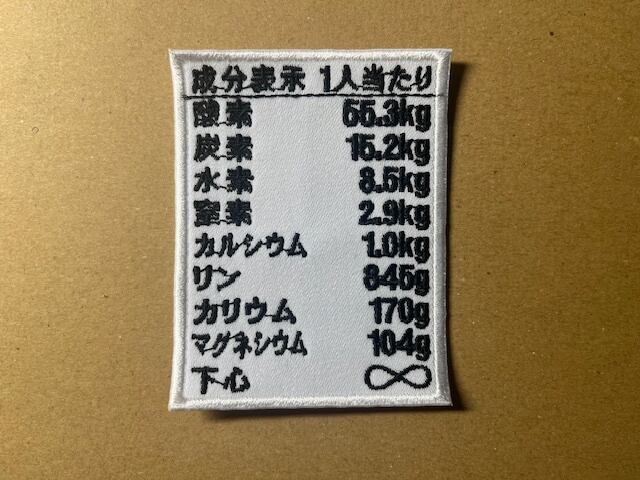 成分表示 1人当たり
酸素 55.3kg
炭素 15.2kg
水素 8.5kg
窒素 2.9kg
カルシウム 1.0kg
リン 845g
カリウム 170g
マグネシウム 104g
下心 ∞